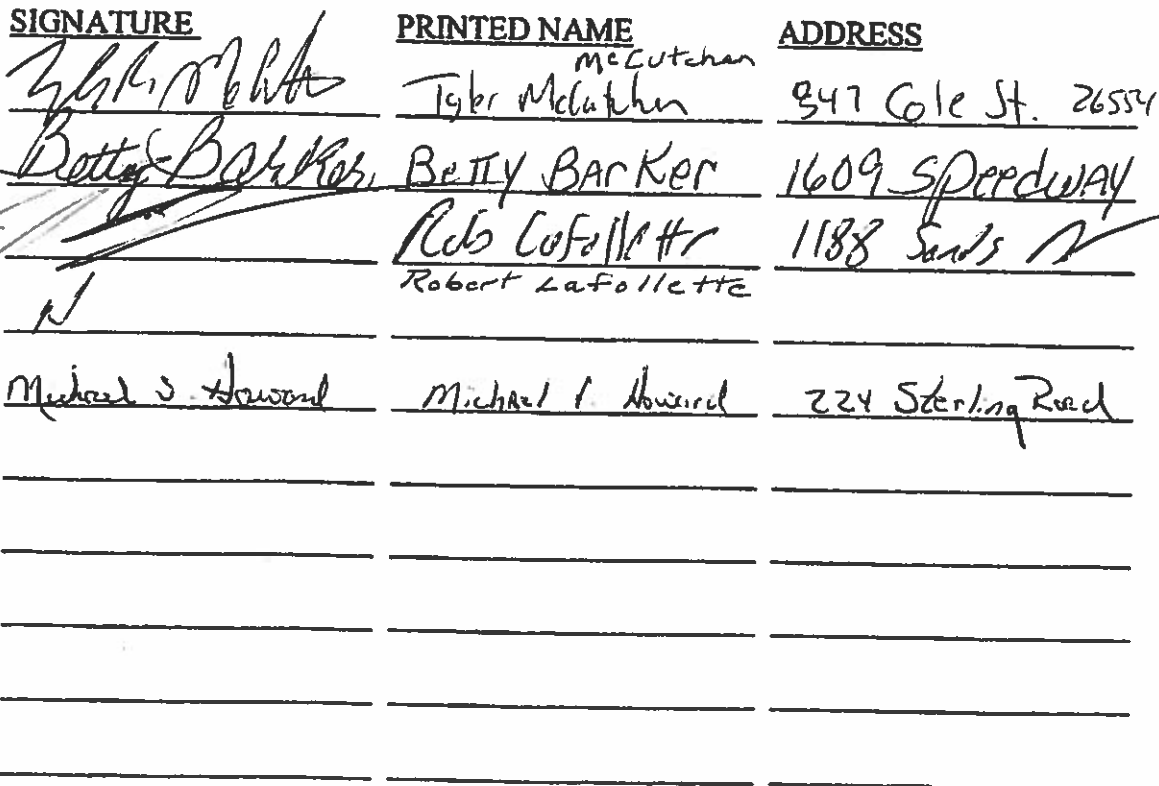 SIGNATURE PRINTED NAME ADDRESS
McCutchan
Tyler McCutchen 947 Cole St. 26554
Betty Barker BeTTY BArKer 1609 SPeedwAY
Rob LaFollette 1188 Sands
Robert LaFollette
N
Michael S Howard Michael Howard 224 Sterling Road